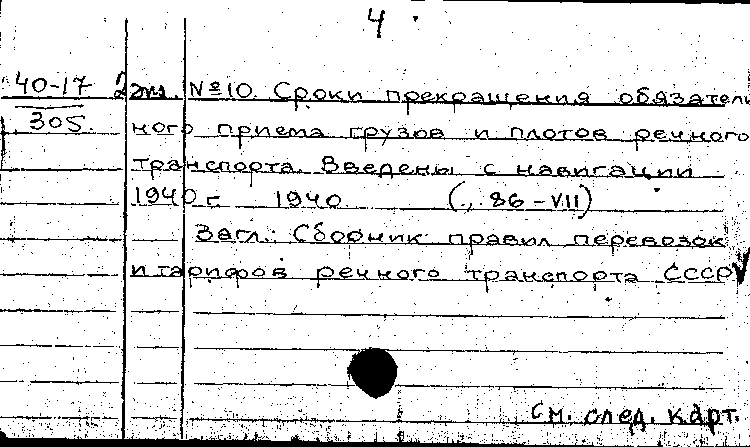 4
40-17 2 экз. №10. Сроки прекращения обязатель
305. ного приема грузов и плотов речного
транспорта. Введены с навигации
1940 г. 1940 (, 86-VII)
Загл.: Сборник правил перевозок
и тарифов речного транспорта СССР
см. след. карт.